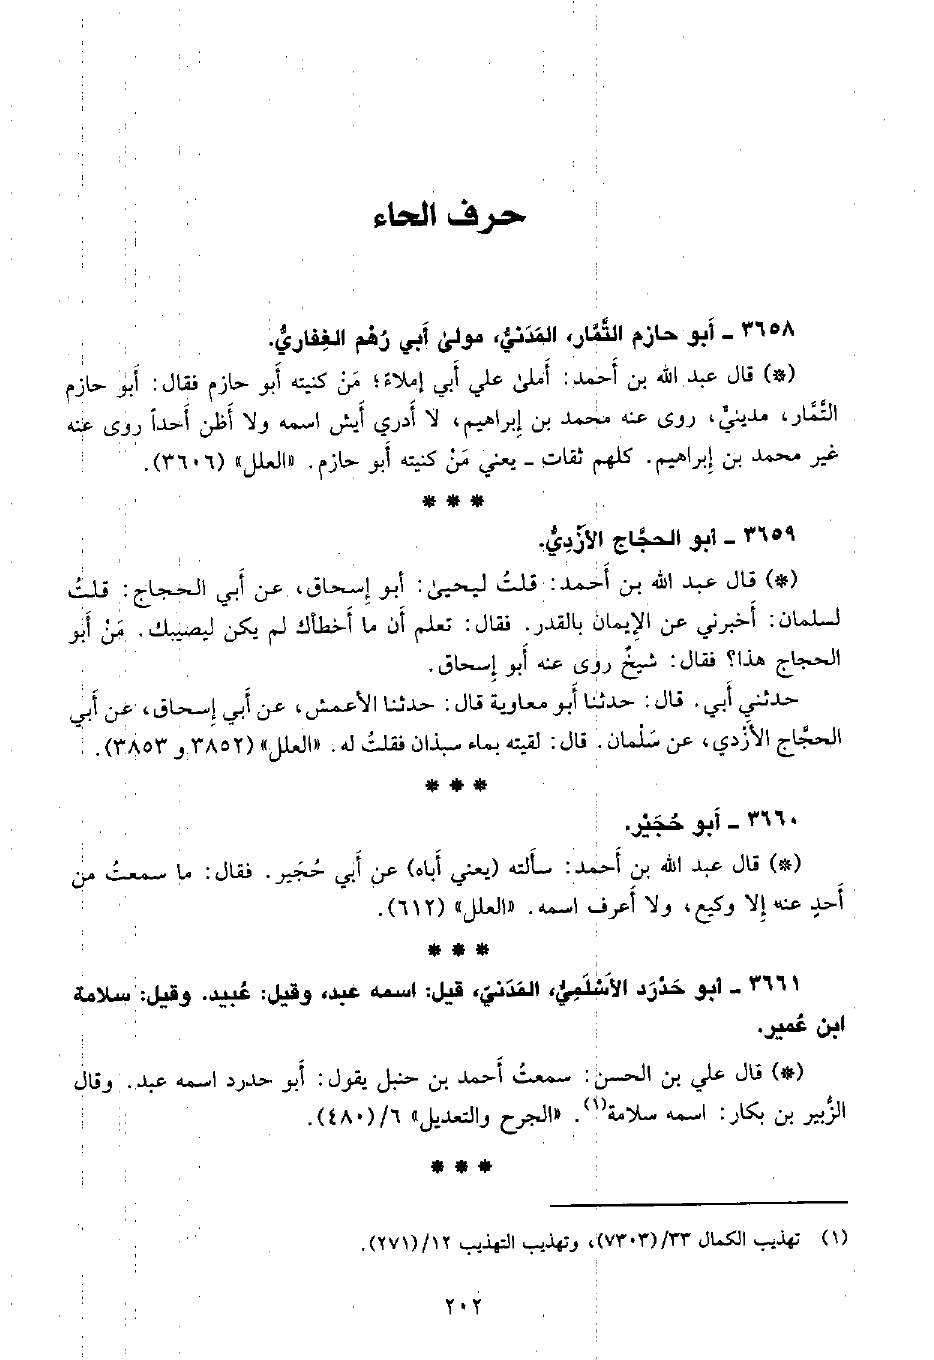 حرف الحاء
٣٦٥٨ ـ أبو حازم التَّمَّار، المَدَنيُّ، مولىٰ أبي رُهْم الغِفاريُّ.
(*) قال عبد الله بن أَحمد: أَملىٰ علي أَبي إملاءً؛ مَنْ كنيته أَبو حازم فقال: أَبو حازم
التَّمَّار، مدينيٌّ، روى عنه محمد بن إِبراهيم، لا أَدري أَيش اسمه ولا أَظن أَحداً روى عنه
غير محمد بن إِبراهيم. كلهم ثقات ـ يعني مَنْ كنيته أَبو حازم. «العلل» (٣٦٠٦).
* * *
٣٦٥٩ ـ أبو الحجَّاج الأزْدِيُّ.
(*) قال عبد الله بن أَحمد: قلتُ ليحيىٰ: أَبو إِسحاق، عن أَبي الحجاج: قلتُ
لسلمان: أَخبرني عن الإِيمان بالقدر. فقال: تعلم أَن ما أَخطأَك لم يكن ليصيبك. مَنْ أَبو
الحجاج هذا؟ فقال: شيخٌ روى عنه أَبو إِسحاق.
حدثني أَبي. قال: حدثنا أَبو معاوية قال: حدثنا الأعمش، عن أَبي إِسحاق، عن أَبي
الحجَّاج الأَزْدي، عن سَلْمان. قال: لقيته بماء سبذان فقلتُ له. «العلل» (٣٨٥٢ و ٣٨٥٣).
* * *
٣٦٦٠ ـ أَبو حُجَيْر.
(*) قال عبد الله بن أَحمد: سأَلته (يعني أَباه) عن أَبي حُجَير. فقال: ما سمعتُ من
أَحدٍ عنه إِلا وكيع، ولا أَعرف اسمه. «العلل» (٦١٢).
* * *
٣٦٦١ ـ أبو حَدْرَد الأَسْلَمِيُّ، المَدَنيّ، قيل: اسمه عبد، وقيل: عُبيد. وقيل: سلامة
ابن عُمير.
(*) قال علي بن الحسن: سمعتُ أَحمد بن حنبل يقول: أَبو حدرد اسمه عبد. وقال
الزُّبير بن بكار: اسمه سلامة(١). «الجرح والتعديل» ٦/(٤٨٠).
* * *
(١) تهذيب الكمال ٣٣/(٧٣٠٣)، وتهذيب التهذيب ١٢/(٢٧١).
٢٠٢